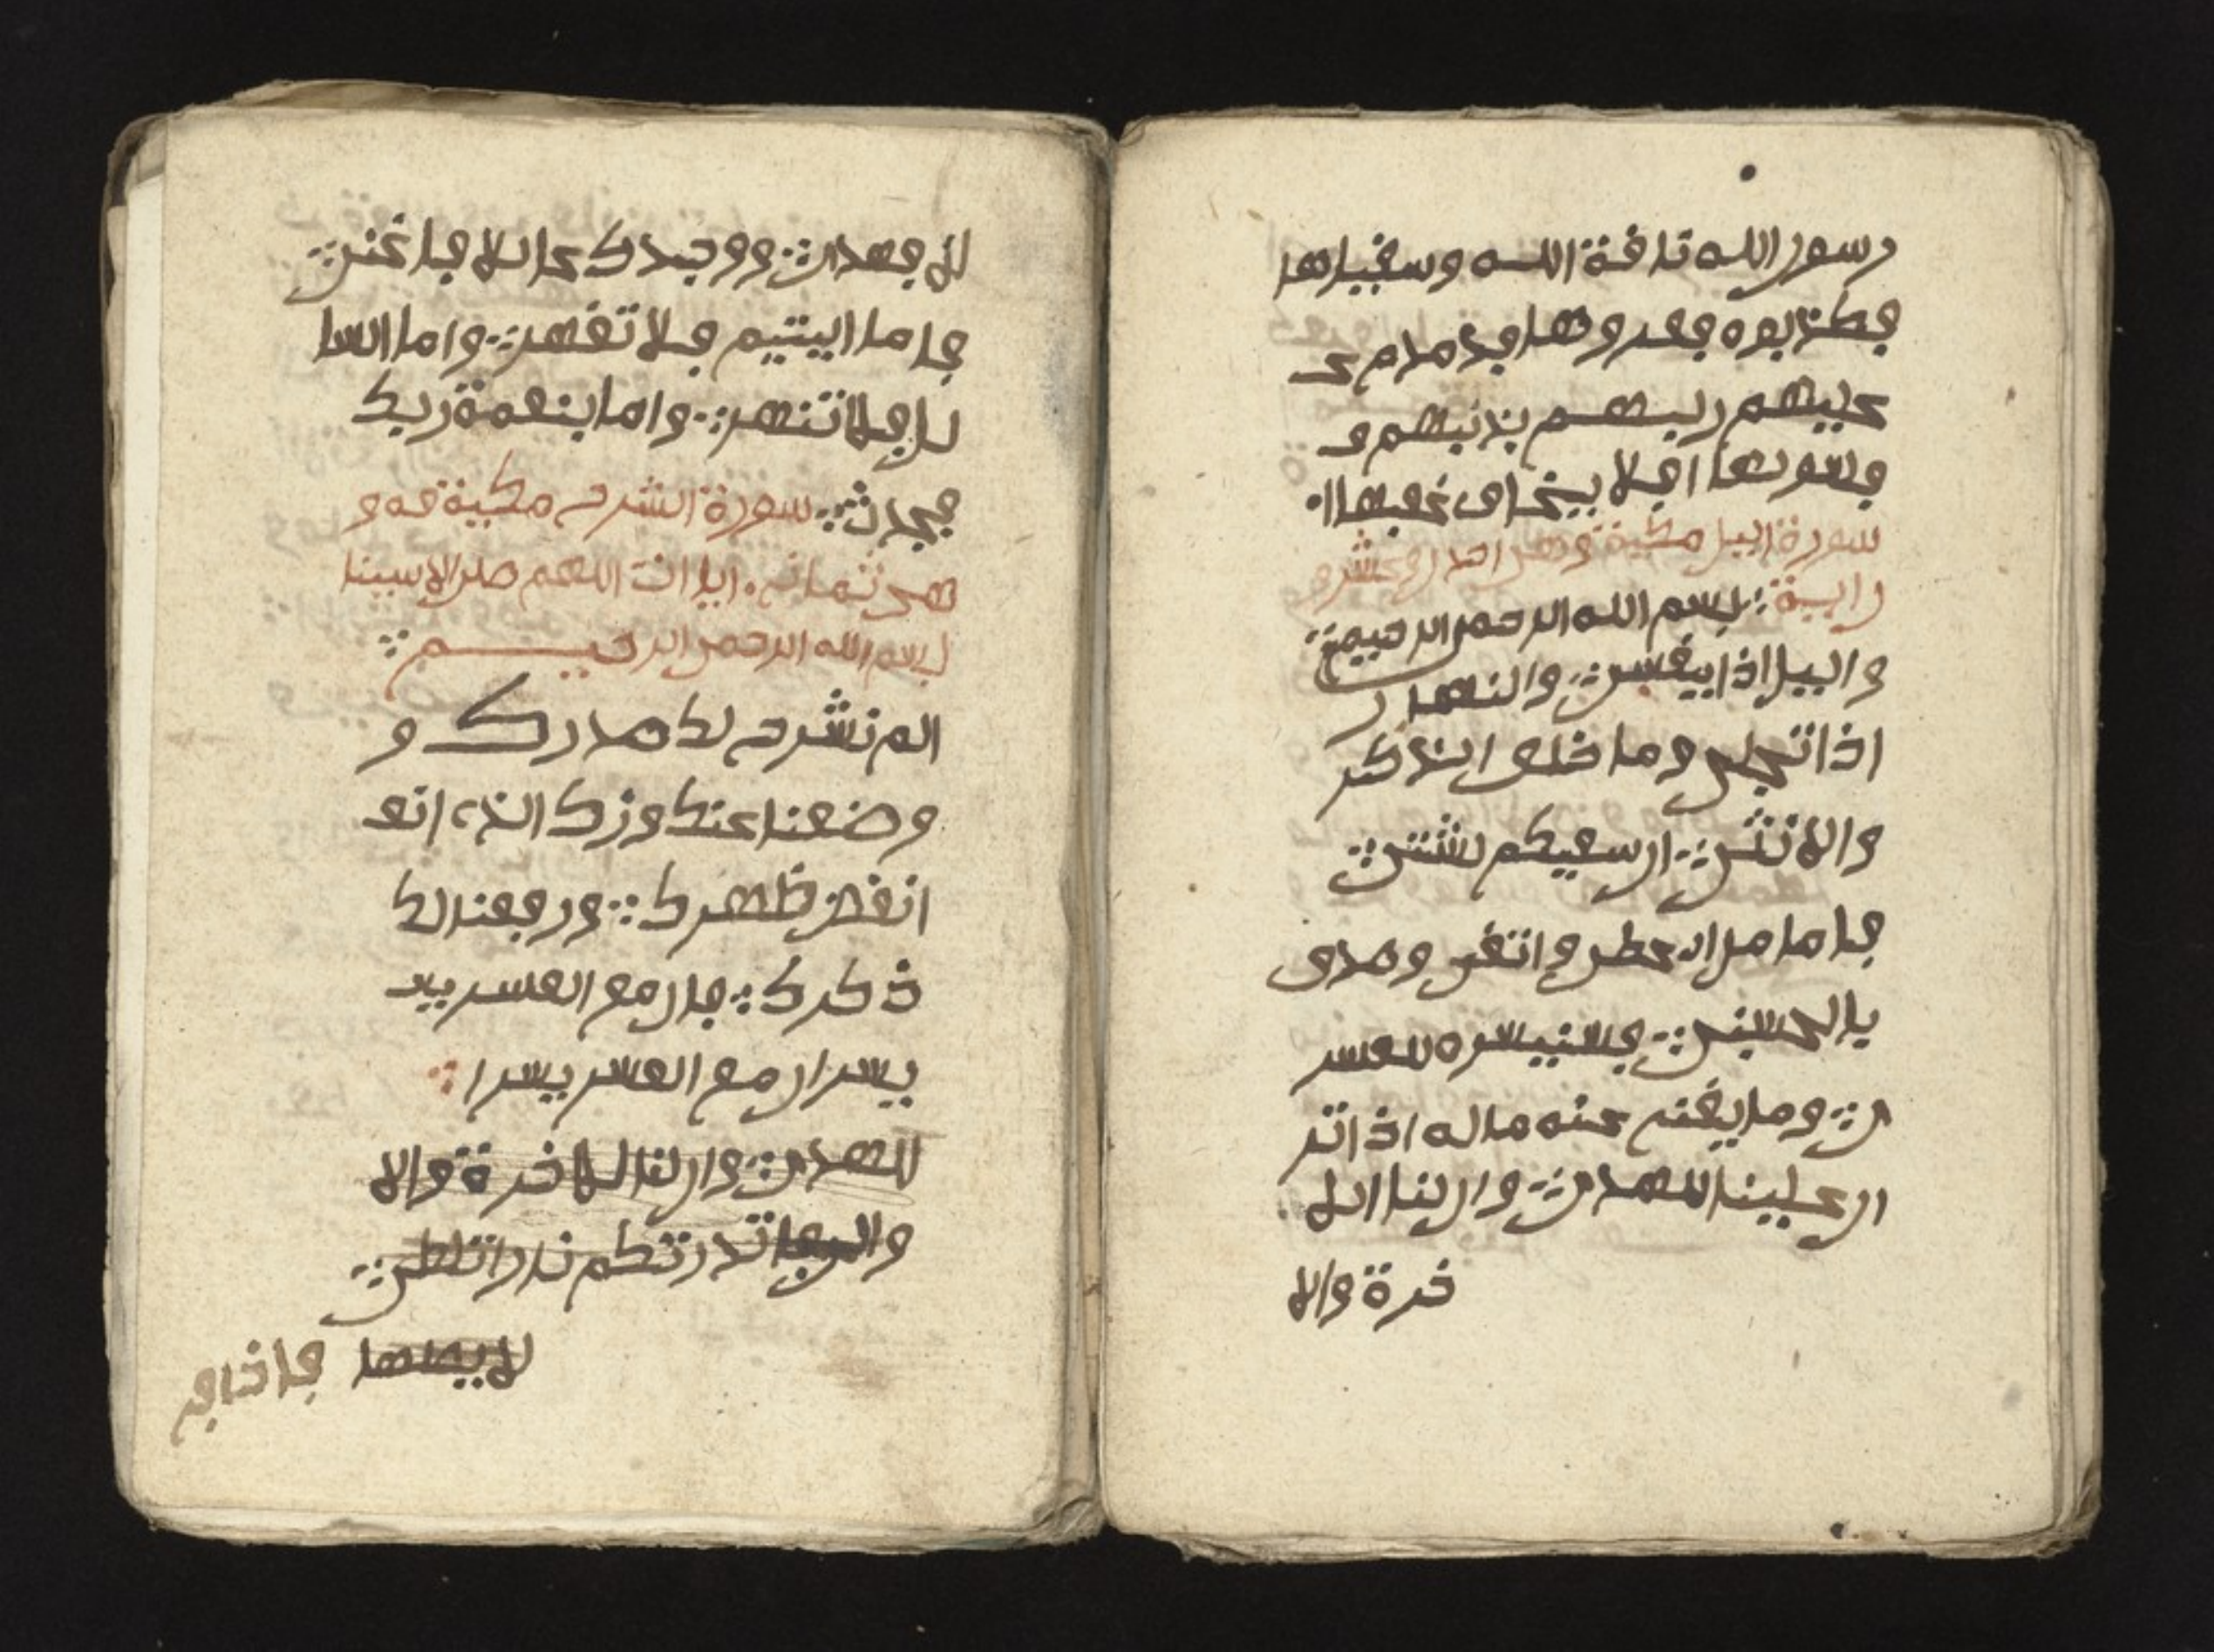 رسور الله نافة الله وسفييها
فكذبوه فعفروها فدمدم ع
عليهم ربهم بذنبهم و
فسويها افلا يخاف عفبها
سورة اليل مكية وهي احد وعشرو
ن اية بسم الله الرحمن الرحيم
واليل اذا يغشى والنهار
اذا تجلى وما خلق الذكر
والانثى ان سعيكم لشتى
فاما من اعطى واتفى وصدق
بالحسنى فسنيسره للعسر
ى وما يغنى عنه ماله اذا تر
ان علينا للهدى وان لنا الل
خرة والا
لا فهدى ووجدك عايلا فاغنى
فاما اليتيم فلا تفهر واما السا
يل فلا تنهر واما بنعمة ربك
فحدث سورة الشرح مكية و
هى ثمانى ايات اللهم صل
بسم الله الرحمن الرحيم
الم نشرح لك صدرك و
وضعنا عنك وزرك الذى انفـ
انفض ظهرك ورفعنا لك
ذكرك فان مع العسر يسـ
يسرا ان مع العسر يسرا
للهدى وان لنا للاخرة والا
والاولى فانذرتكم نارا تلظى
لا يصلها